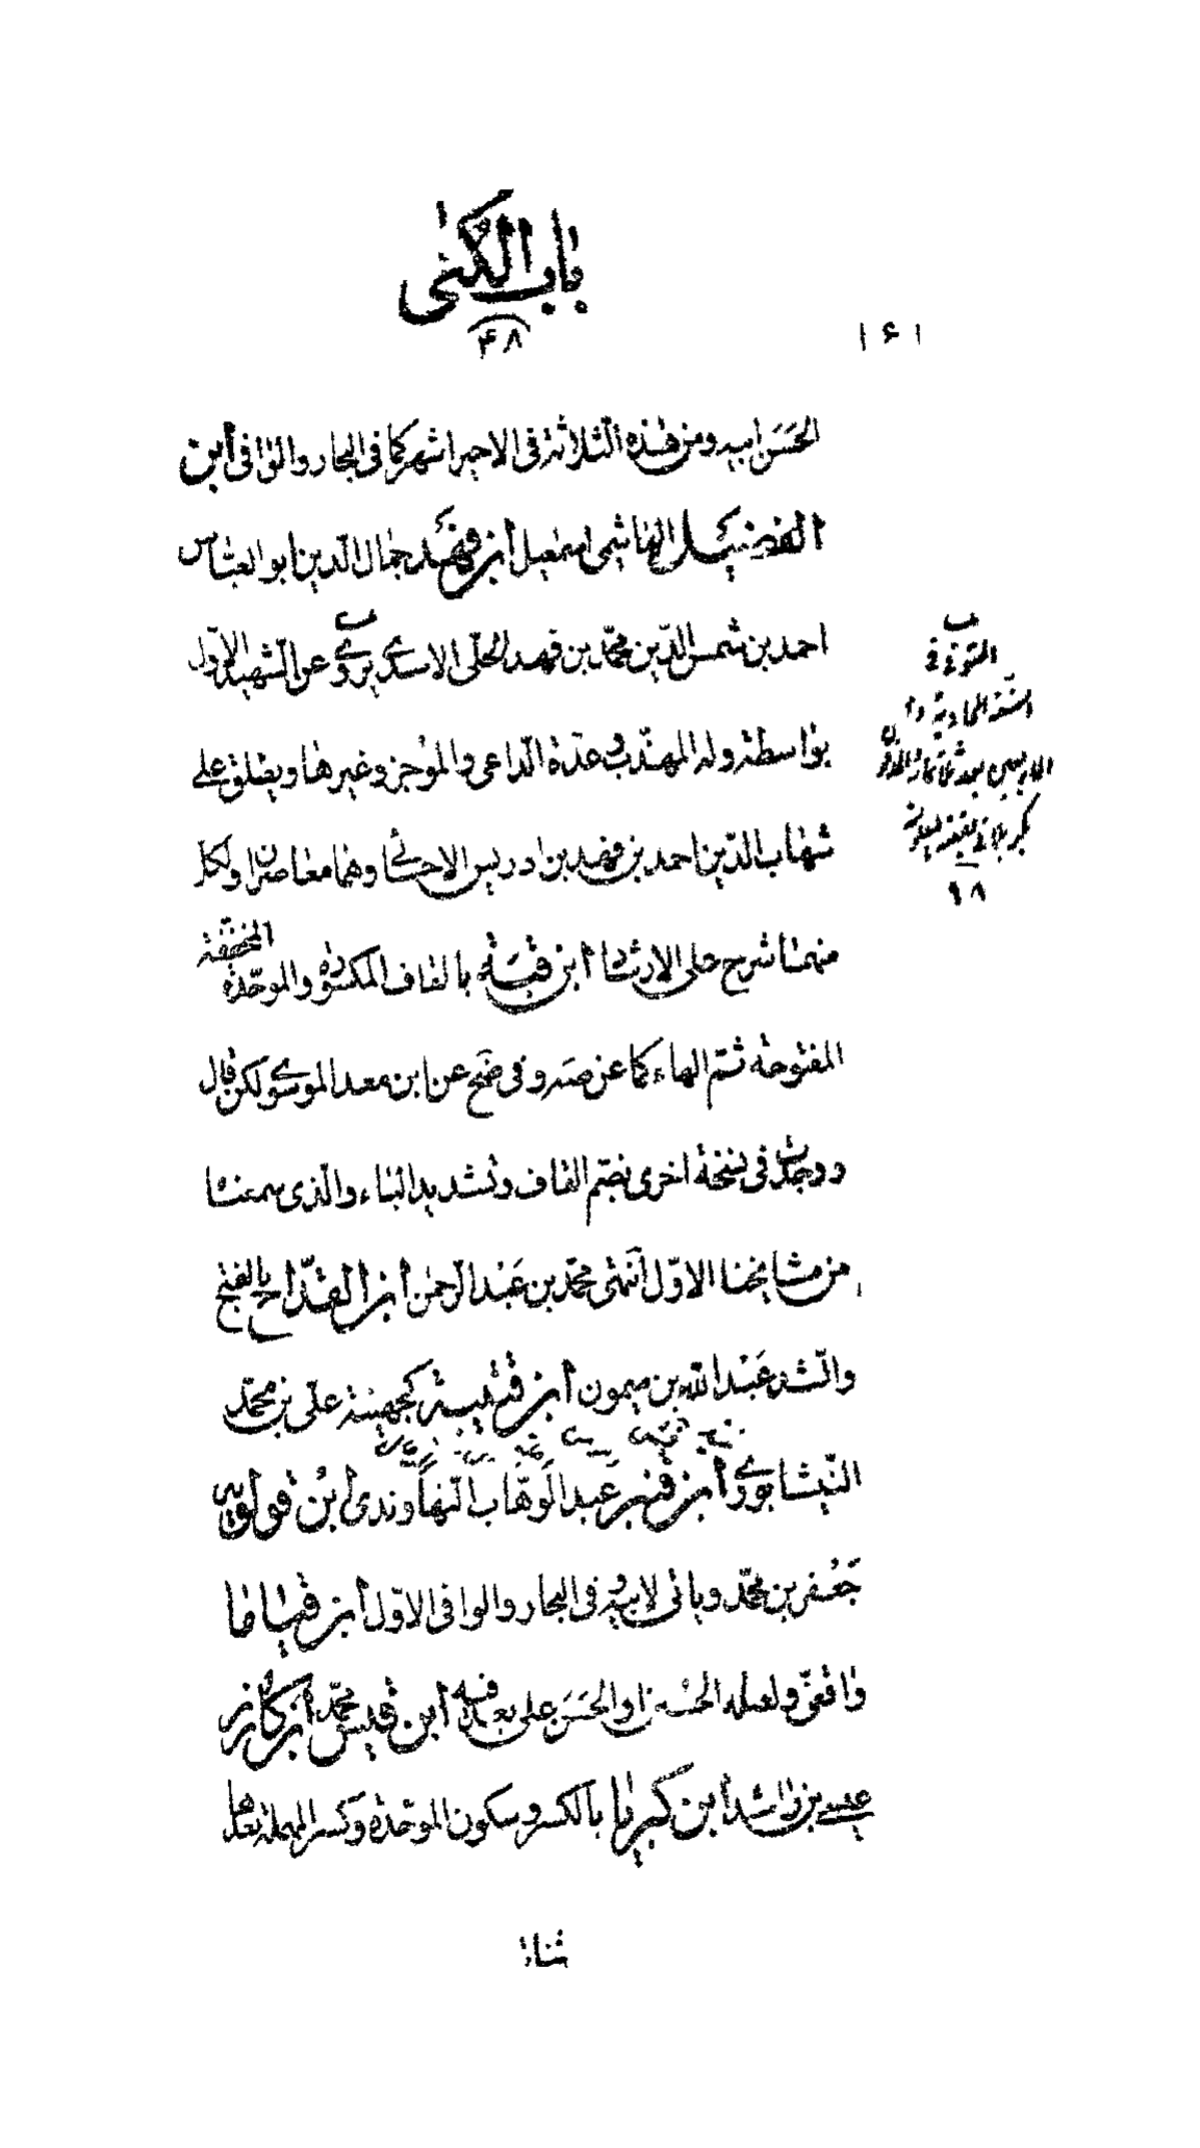 باب الكنى
۴۸
۱۶۱
الحَسَن ابيه ومن هذه الثلاثة فى الاخير اشهر كما فى البحار والوافى أبن
الفضيل الهاشمى اسمعيل أبن فهد جمال الدين ابو العباس
احمد بن شمس الدّين محمّد بن فهد الحلّى الاسدي يروي عن الشهيد الاوّل
بواسطة وله المهذّب وعدّة الدّاعى والموجز وغيرها ويطلق على
شهاب الدّين احمد بن فهد بن ادريس الاحسائى وهما معاصران ولكل
منهما شرح على الارشاد أبن قبَة بالقاف المكسورة والموحّدة المخففة
المفتوحة ثمّ الهاء كما عن صه وفى ضح عن ابن معد الموسوي لكن قال
ووجدت فى نسخة اخرى بضمّ القاف وتشديد الباء والّذى سمعنا
من مشايخنا الاوّل انتهى محمّد بن عَبْد الرّحمٰن أبن القدّاح بالفتح
والشد عَبْد الله بن ميمون أبن قتيبة كجهينة علىّ بن محمّد
النّيشابوري أبن قنبر عبد الوهّاب النّهاوندى أبن قولويه
جَعْفر بن محمّد ويأتى لابيه فى البحار والوافى الاوّل أبن قياما
واقفىّ ولعله الحسين او الحَسَن على بعد فيه أبن قيس محمّد أبن كازر
عيسى بن راشد أبن كبريا بالكسر وسكون الموحّدة وكسر المهملة بعدها
المتوفى فى
السنة الحادية و
الاربعين بعد ثمانمائة المدفون
بكربلا
۹۸